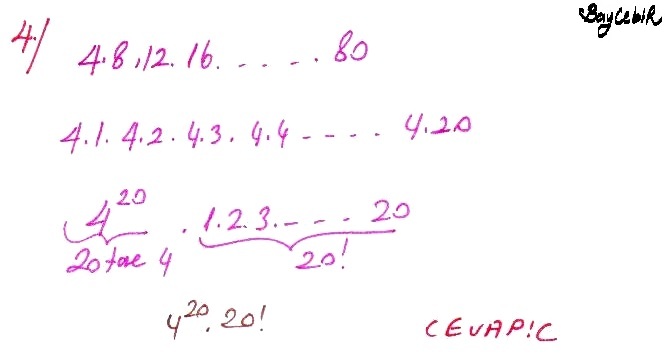 BayCebiR
4) 4.8.12.16. . . . . . 80
4.1.4.2.4.3.4.4 - - - . . 4.20
4²⁰ . 1.2.3. - - - . 20
20 tane 4 20!
4²⁰.20!
CEVAP!C